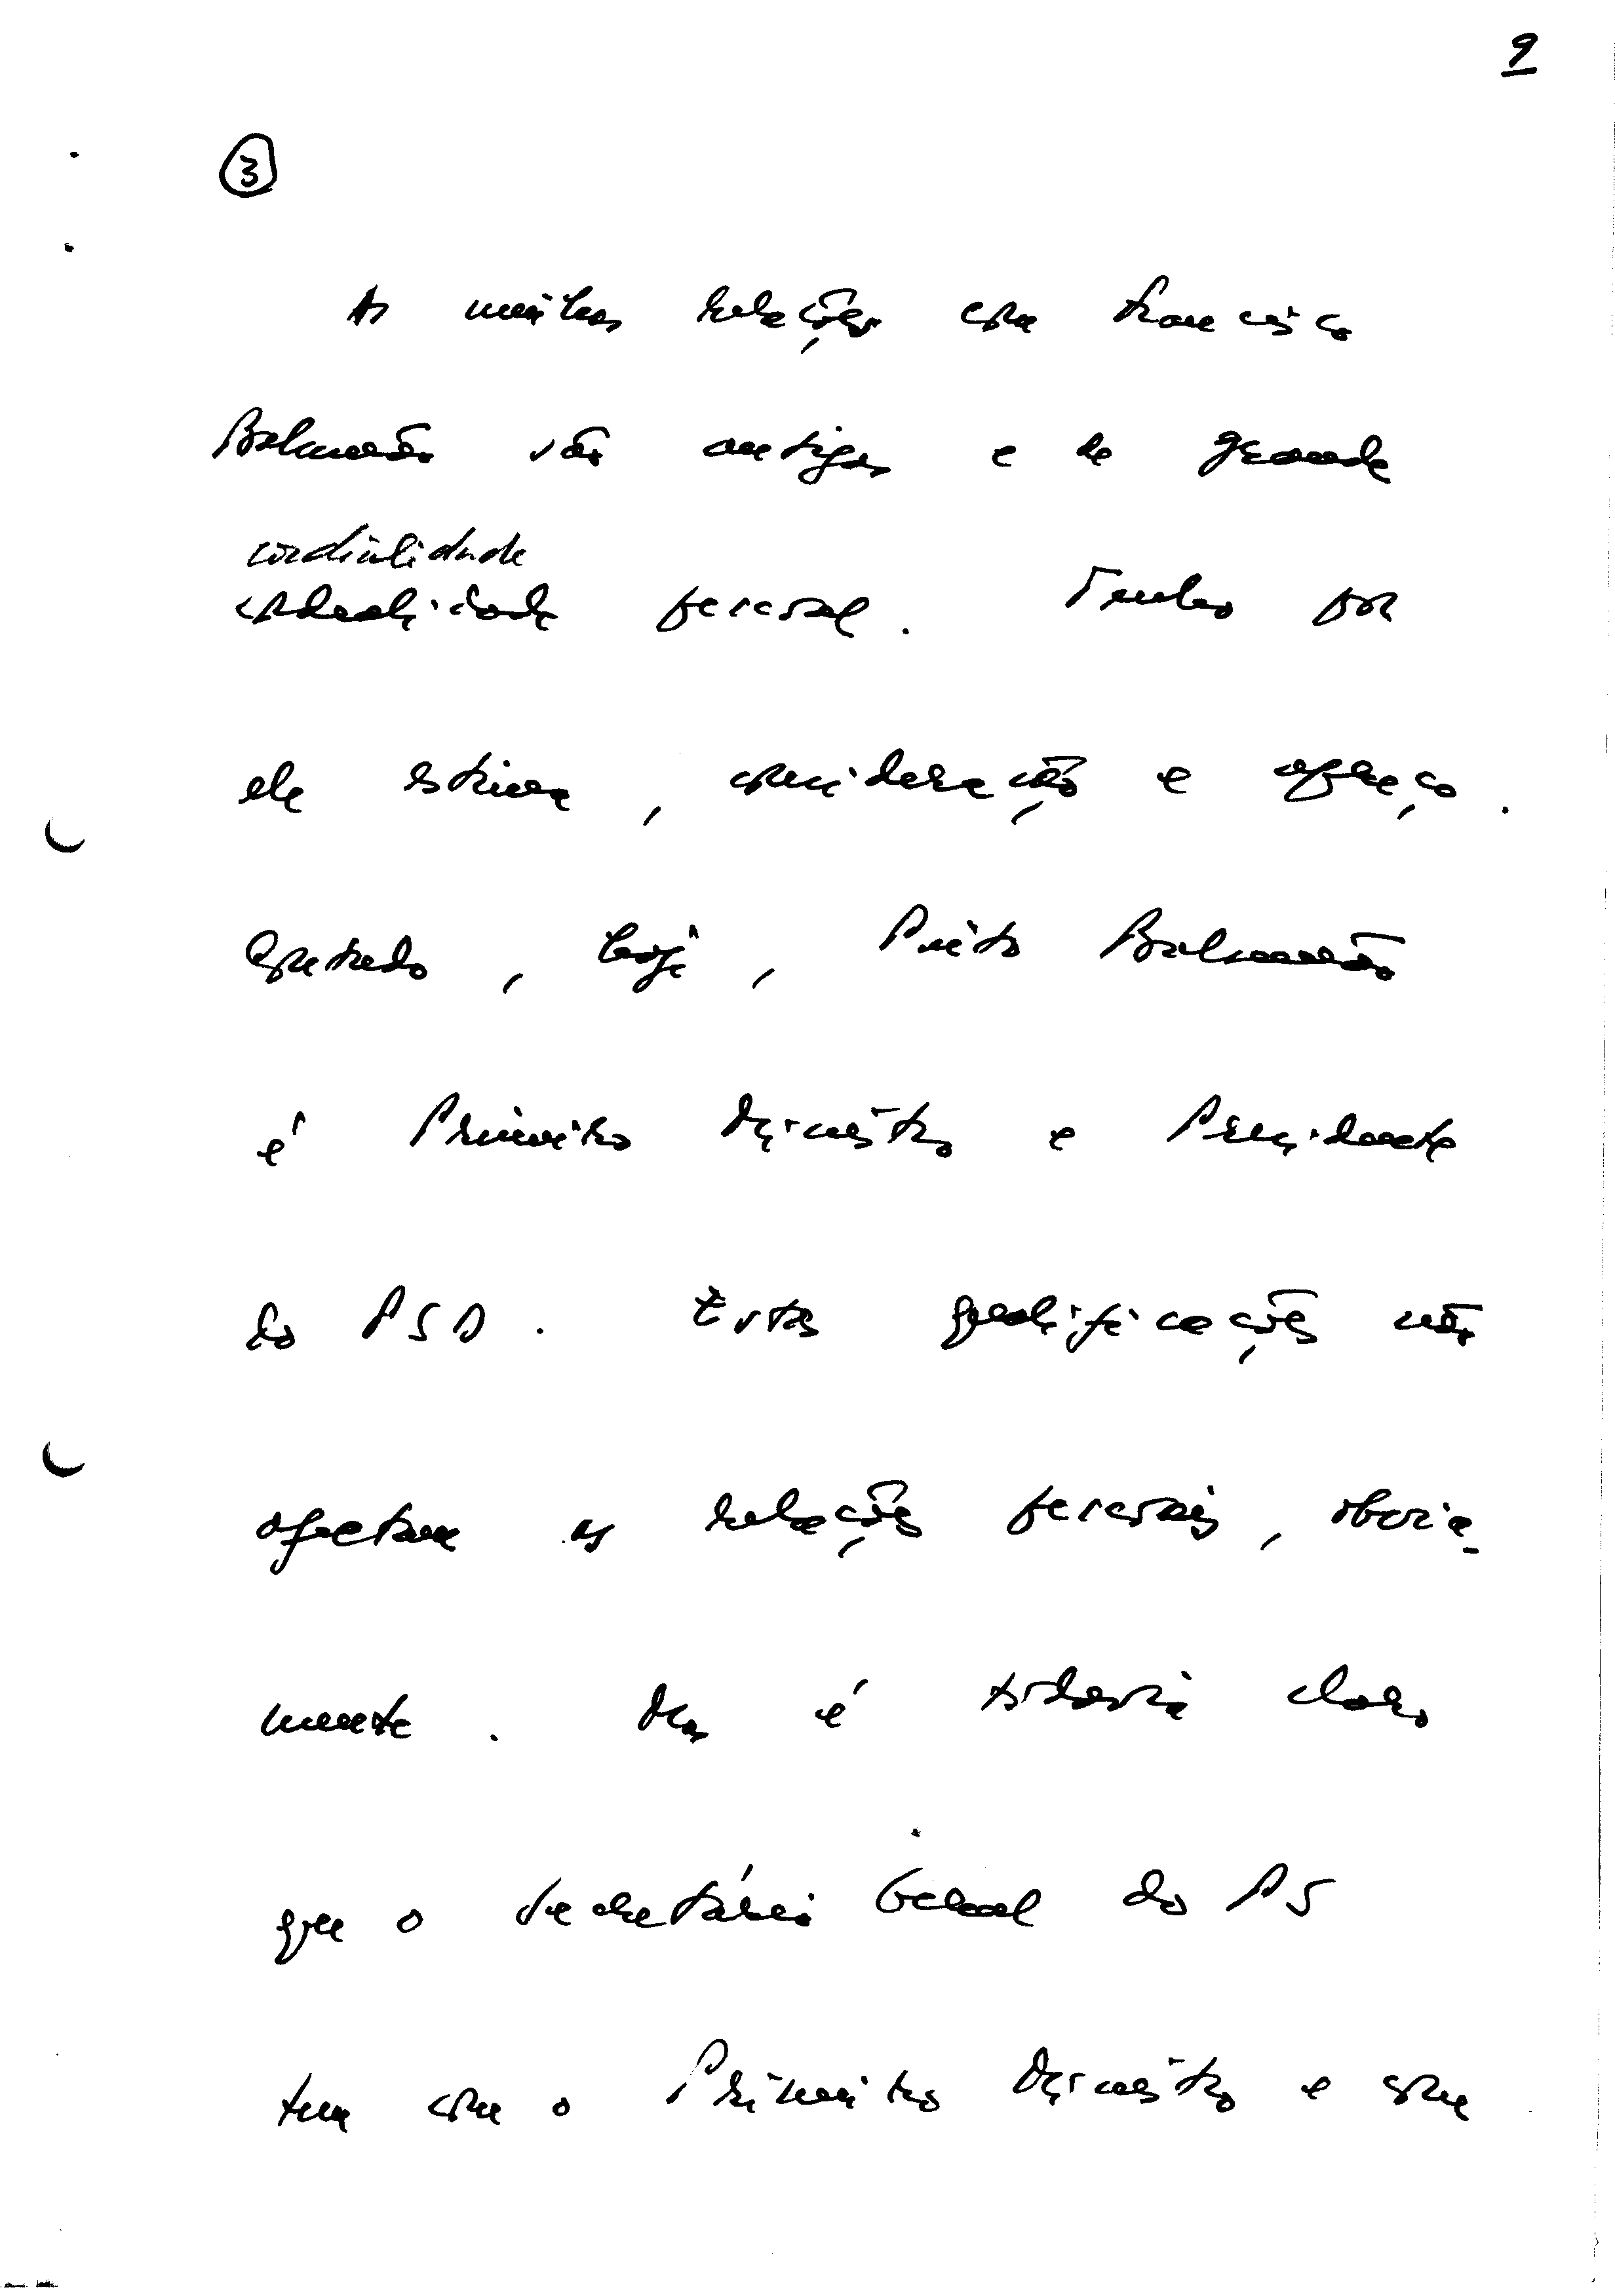 9
3
As minhas relações com Francisco
Balsemão são antigas e de grande
cordialidade
cordialidade pessoal. Tenho por
ele estima, consideração e apreço.
Contudo, hoje, Pinto Balsemão
é Primeiro Ministro e Presidente
do PSD. Estas qualificações não
afectam as relações pessoais, obvia-
mente. Mas é todavia claro
que o Secretário Geral do PS
tem com o Primeiro Ministro e com